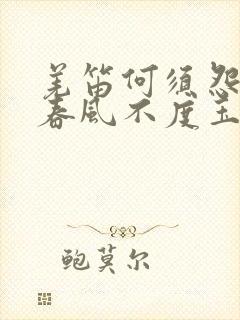 羌笛何须怨
春风不度玉
鲍莫尔